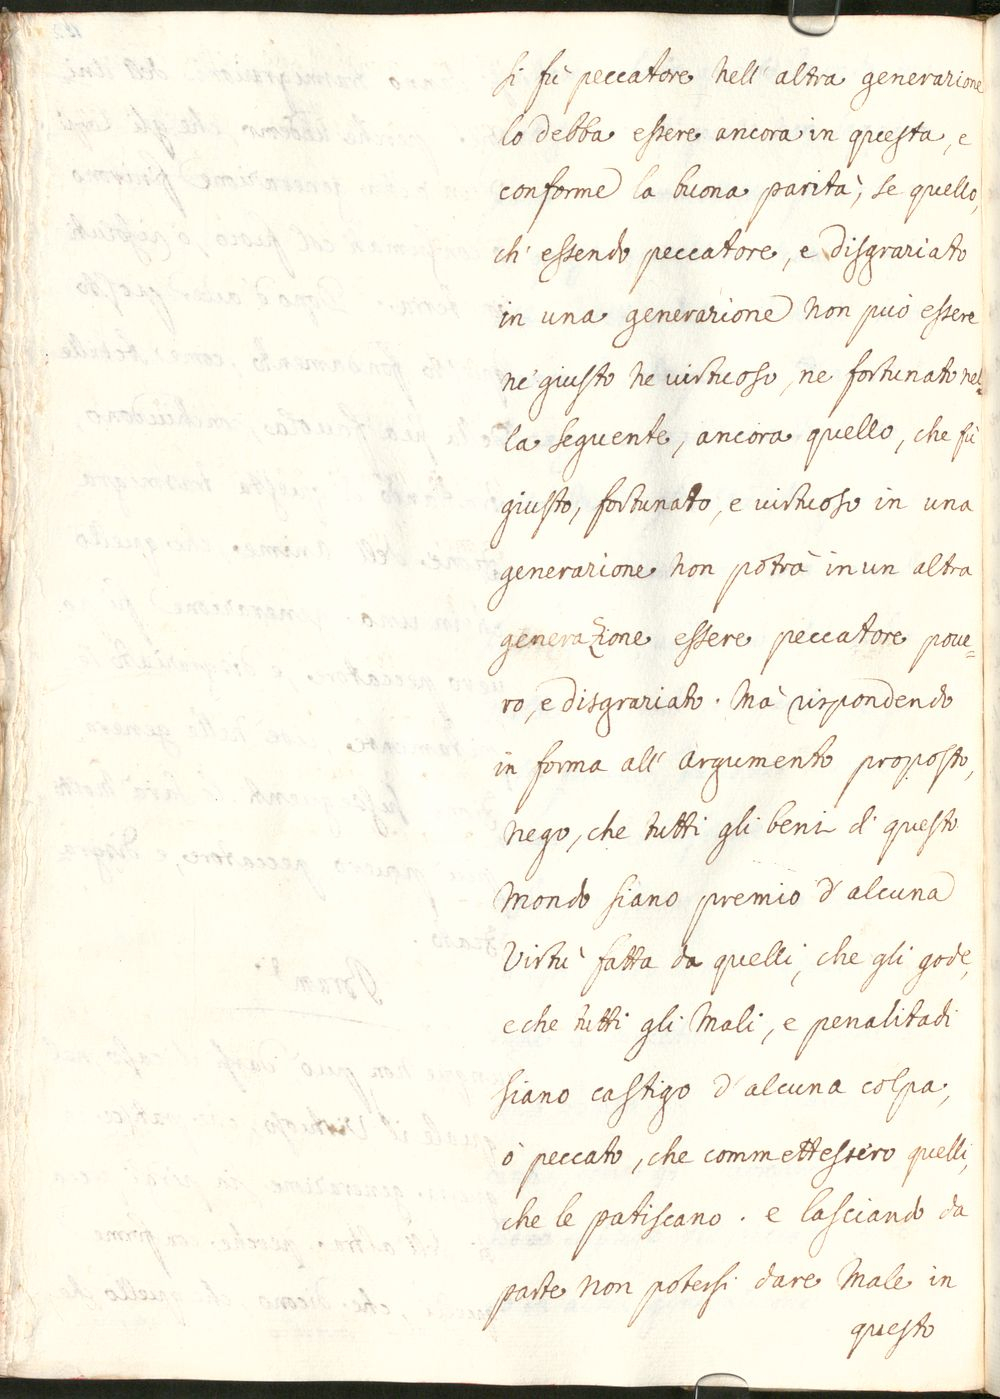 si fù peccatore nell' altra generazione
lo debba essere ancora in questa, e
conforme la buona parità, se quello,
ch' essendo peccatore, e disgraziato
in una generazione non può essere
nè giusto ne virtuoso, ne fortunato nel-
la seguente, ancora quello, che fù
giusto, fortunato, e virtuoso in una
generazione non potrà in un altra
generazione essere peccatore pove=
ro, e disgraziato. Mà rispondendo
in forma all' argumento proposto,
nego, che tutti gli beni di questo
Mondo siano premio d'alcuna
Virtù fatta da quelli, che gli gode,
e che tutti gli Mali, e penalitadi
siano castigo d'alcuna colpa,
ò peccato, che commettessero quelli,
che le patiscano. e lasciando da
parte non potersi dare Male in
questo